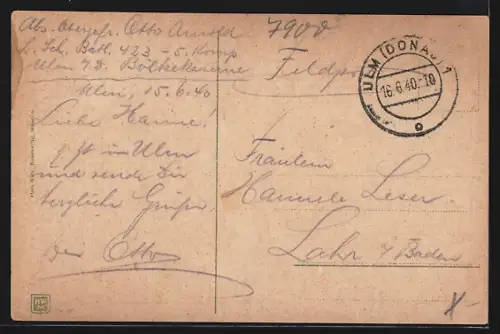 Abs. Obergefr. Otto Arnold
L. Sch. Batl. 423 - 5. Komp
Ulm /D. Bölkekaserne
7900
Feldpost
ULM (DONAU) 1
16.6.40.-10
Ulm, 15.6.40
Liebe Hanne!
in Ulm
und sende Dir
herzliche Grüße.
Otto
Fräulein
Hannele Leser
Lahr / Baden